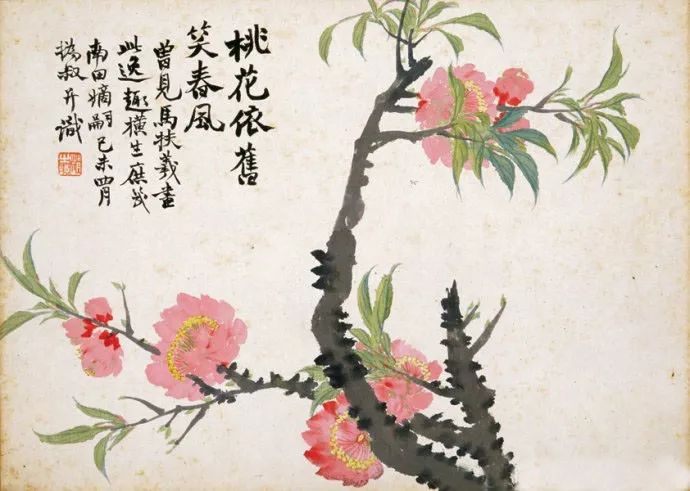 桃花依舊
笑春風
曾見馬扶羲畫
此逸趣橫生庶幾
南田嫡嗣己未四月
叔并識